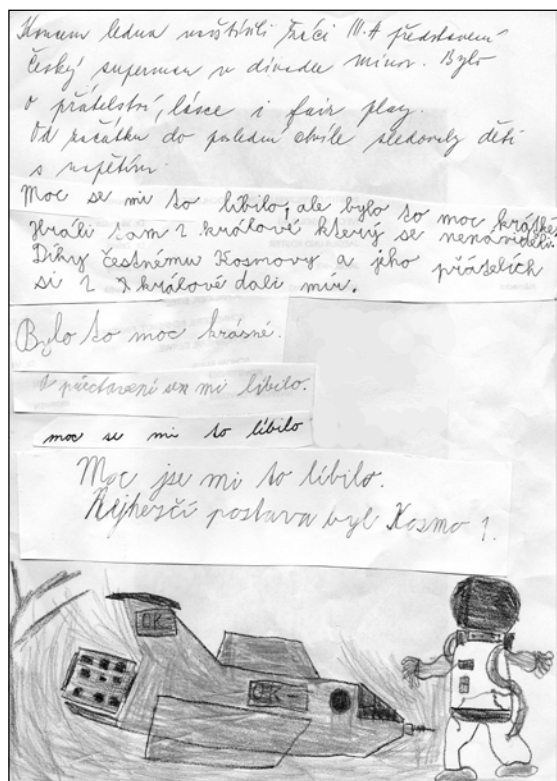 Koncem ledna navštívili žáci III.A představení
Český superman v divadle minor. Bylo
o přátelství, lásce i fair play.
Od začátku do poslední chvíle sledovaly děti
s napětím.
Moc se mi to líbilo, ale bylo to moc krátké.
Hráli tam 2 králové který se nenáviděli.
Díky čestnému Kosmovy a jeho přátelích
si 2 králové dali mír.
Bylo to moc krásné.
představení se mi líbilo.
moc se mi to líbilo
Moc jse mi to líbilo.
Nejhezčí postava byl Kosmo 1.
OK
OK